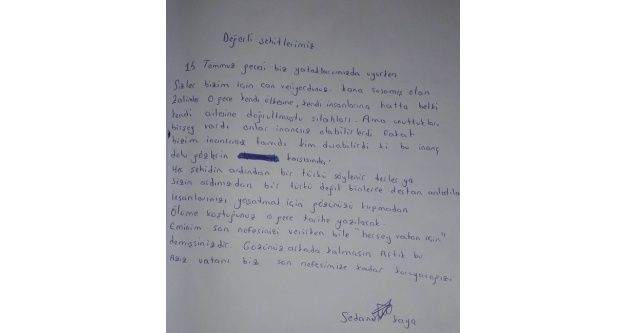 Değerli şehitlerimiz
15 Temmuz gecesi biz yataklarımızda uyurken
Sizler bizim için can veriyordunuz. kana susamış olan
zalimler o gece kendi ülkesine, kendi insanlarına hatta belki
kendi ailesine doğrultmuştu silahları. Ama unuttukları
birşey vardı onlar inançsız olabilirlerdi fakat
bizim inancımız tamdı kim durabilirdi ki bu inanç
dolu gözlerin karşısında.
Her şehidin ardından bir türkü söylenir derler ya
sizin ardınızdan bir türkü değil binlerce destan anlatılır
İnsanlarınızı yaşatmak için gözünüzü kırpmadan
Ölüme koştuğunuz o gece tarihe yazılacak.
Eminim son nefesinizi verirken bile "herşey vatan için"
demişsinizdir. Gözünüz arkada kalmasın Artık bu
Aziz vatanı biz son nefesimize kadar koruyacağız.
Sedanur kaya